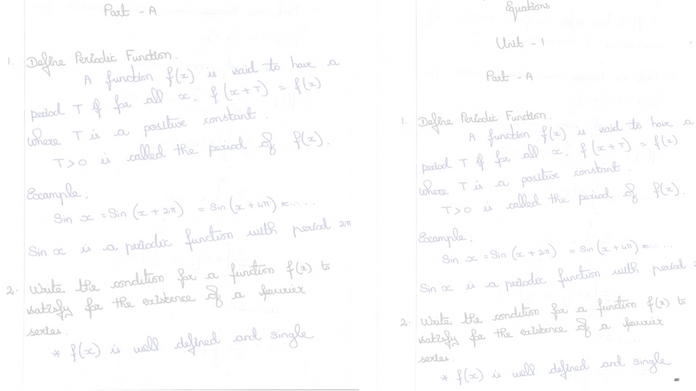 Part - A
1. Define Periodic Function.
A function f(x) is said to have a
period T if for all x, f(x+T) = f(x)
where T is a positive constant.
T>0 is called the period of f(x).
Example.
Sin x = Sin (x + 2π) = Sin (x + 4π) = .....
Sin x is a periodic function with period 2π
2. Write the condition for a function f(x) to
satisfy for the existence of a fourier
series.
* f(x) is well defined and single
Equations
Unit - 1
Part - A
1. Define Periodic Function.
A function f(x) is said to have a
period T if for all x, f(x+T) = f(x)
where T is a positive constant.
T>0 is called the period of f(x).
Example.
Sin x = Sin (x + 2π) = Sin (x + 4π) = .....
Sin x is a periodic function with period 2
2. Write the condition for a function f(x) to
satisfy for the existence of a fourier
series.
* f(x) is well defined and single